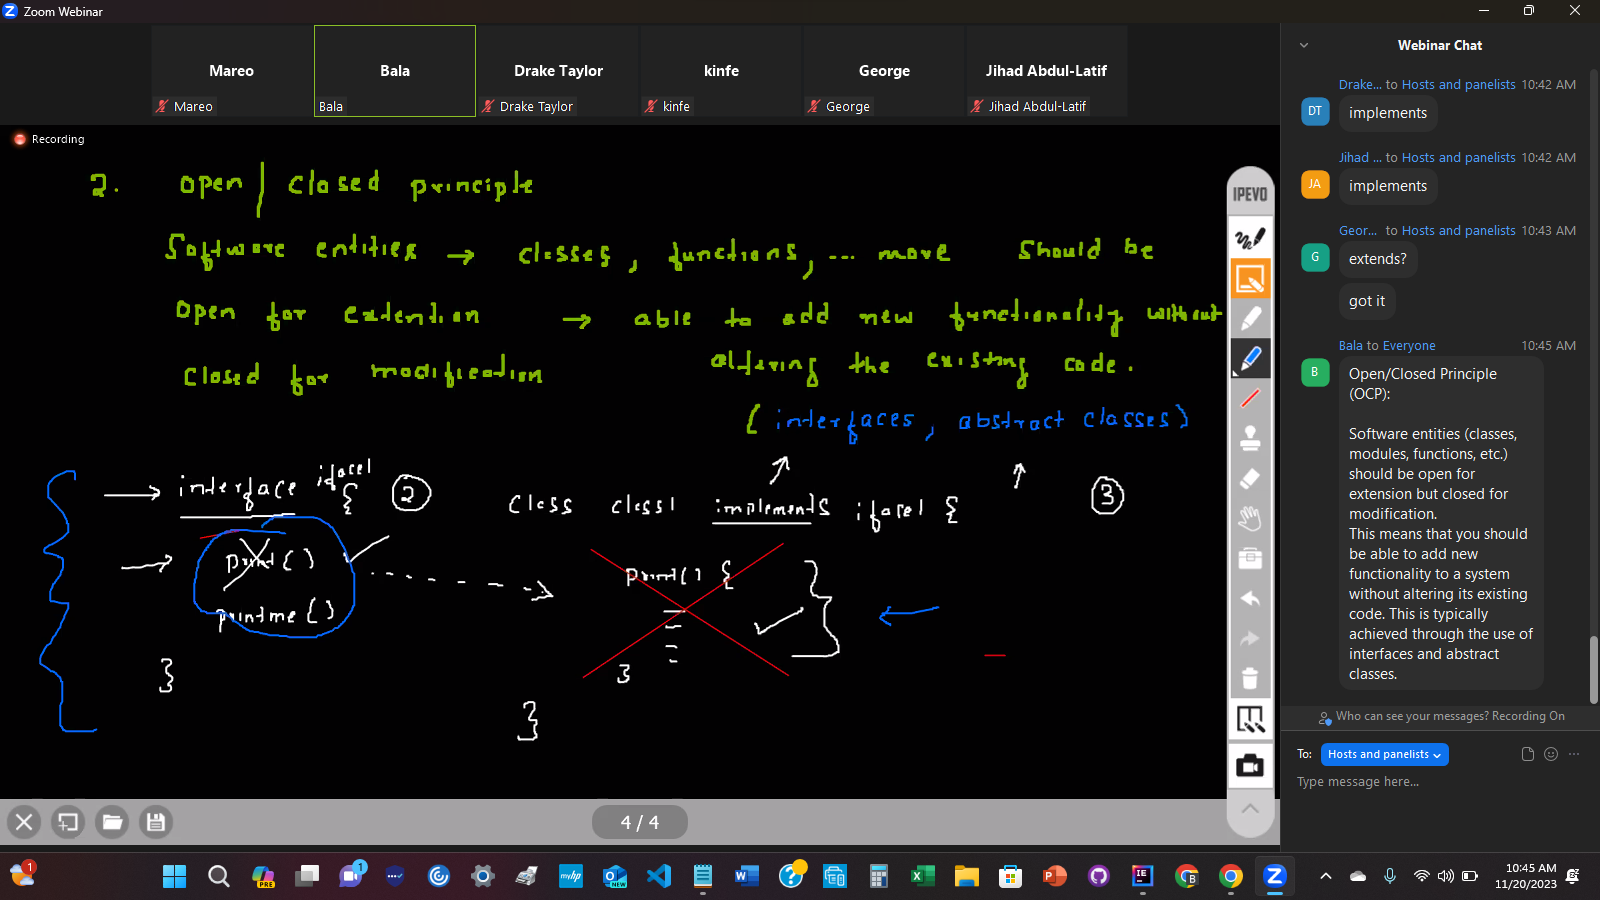 Zoom Webinar
Mareo
Bala
Drake Taylor
kinfe
George
Jihad Abdul-Latif
Mareo
Bala
Drake Taylor
kinfe
George
Jihad Abdul-Latif
Recording
2. open / closed principle
Software entities → classes, functions, ... more should be
open for extention → able to add new functionality without
closed for modification altering the existing code.
( interfaces, abstract classes)
→ interface iface1 { 2
class class1 implements iface1 { 3
→ print()
print() {
printme()
}
}
}
IPEVO
4 / 4
Webinar Chat
Drake... to Hosts and panelists 10:42 AM
DT
implements
Jihad ... to Hosts and panelists 10:42 AM
JA
implements
Geor... to Hosts and panelists 10:43 AM
G
extends?
got it
Bala to Everyone 10:45 AM
B
Open/Closed Principle
(OCP):
Software entities (classes,
modules, functions, etc.)
should be open for
extension but closed for
modification.
This means that you should
be able to add new
functionality to a system
without altering its existing
code. This is typically
achieved through the use of
interfaces and abstract
classes.
Who can see your messages? Recording On
To: Hosts and panelists
Type message here...
1
PRE
1
myhp
NEW
10:45 AM
11/20/2023